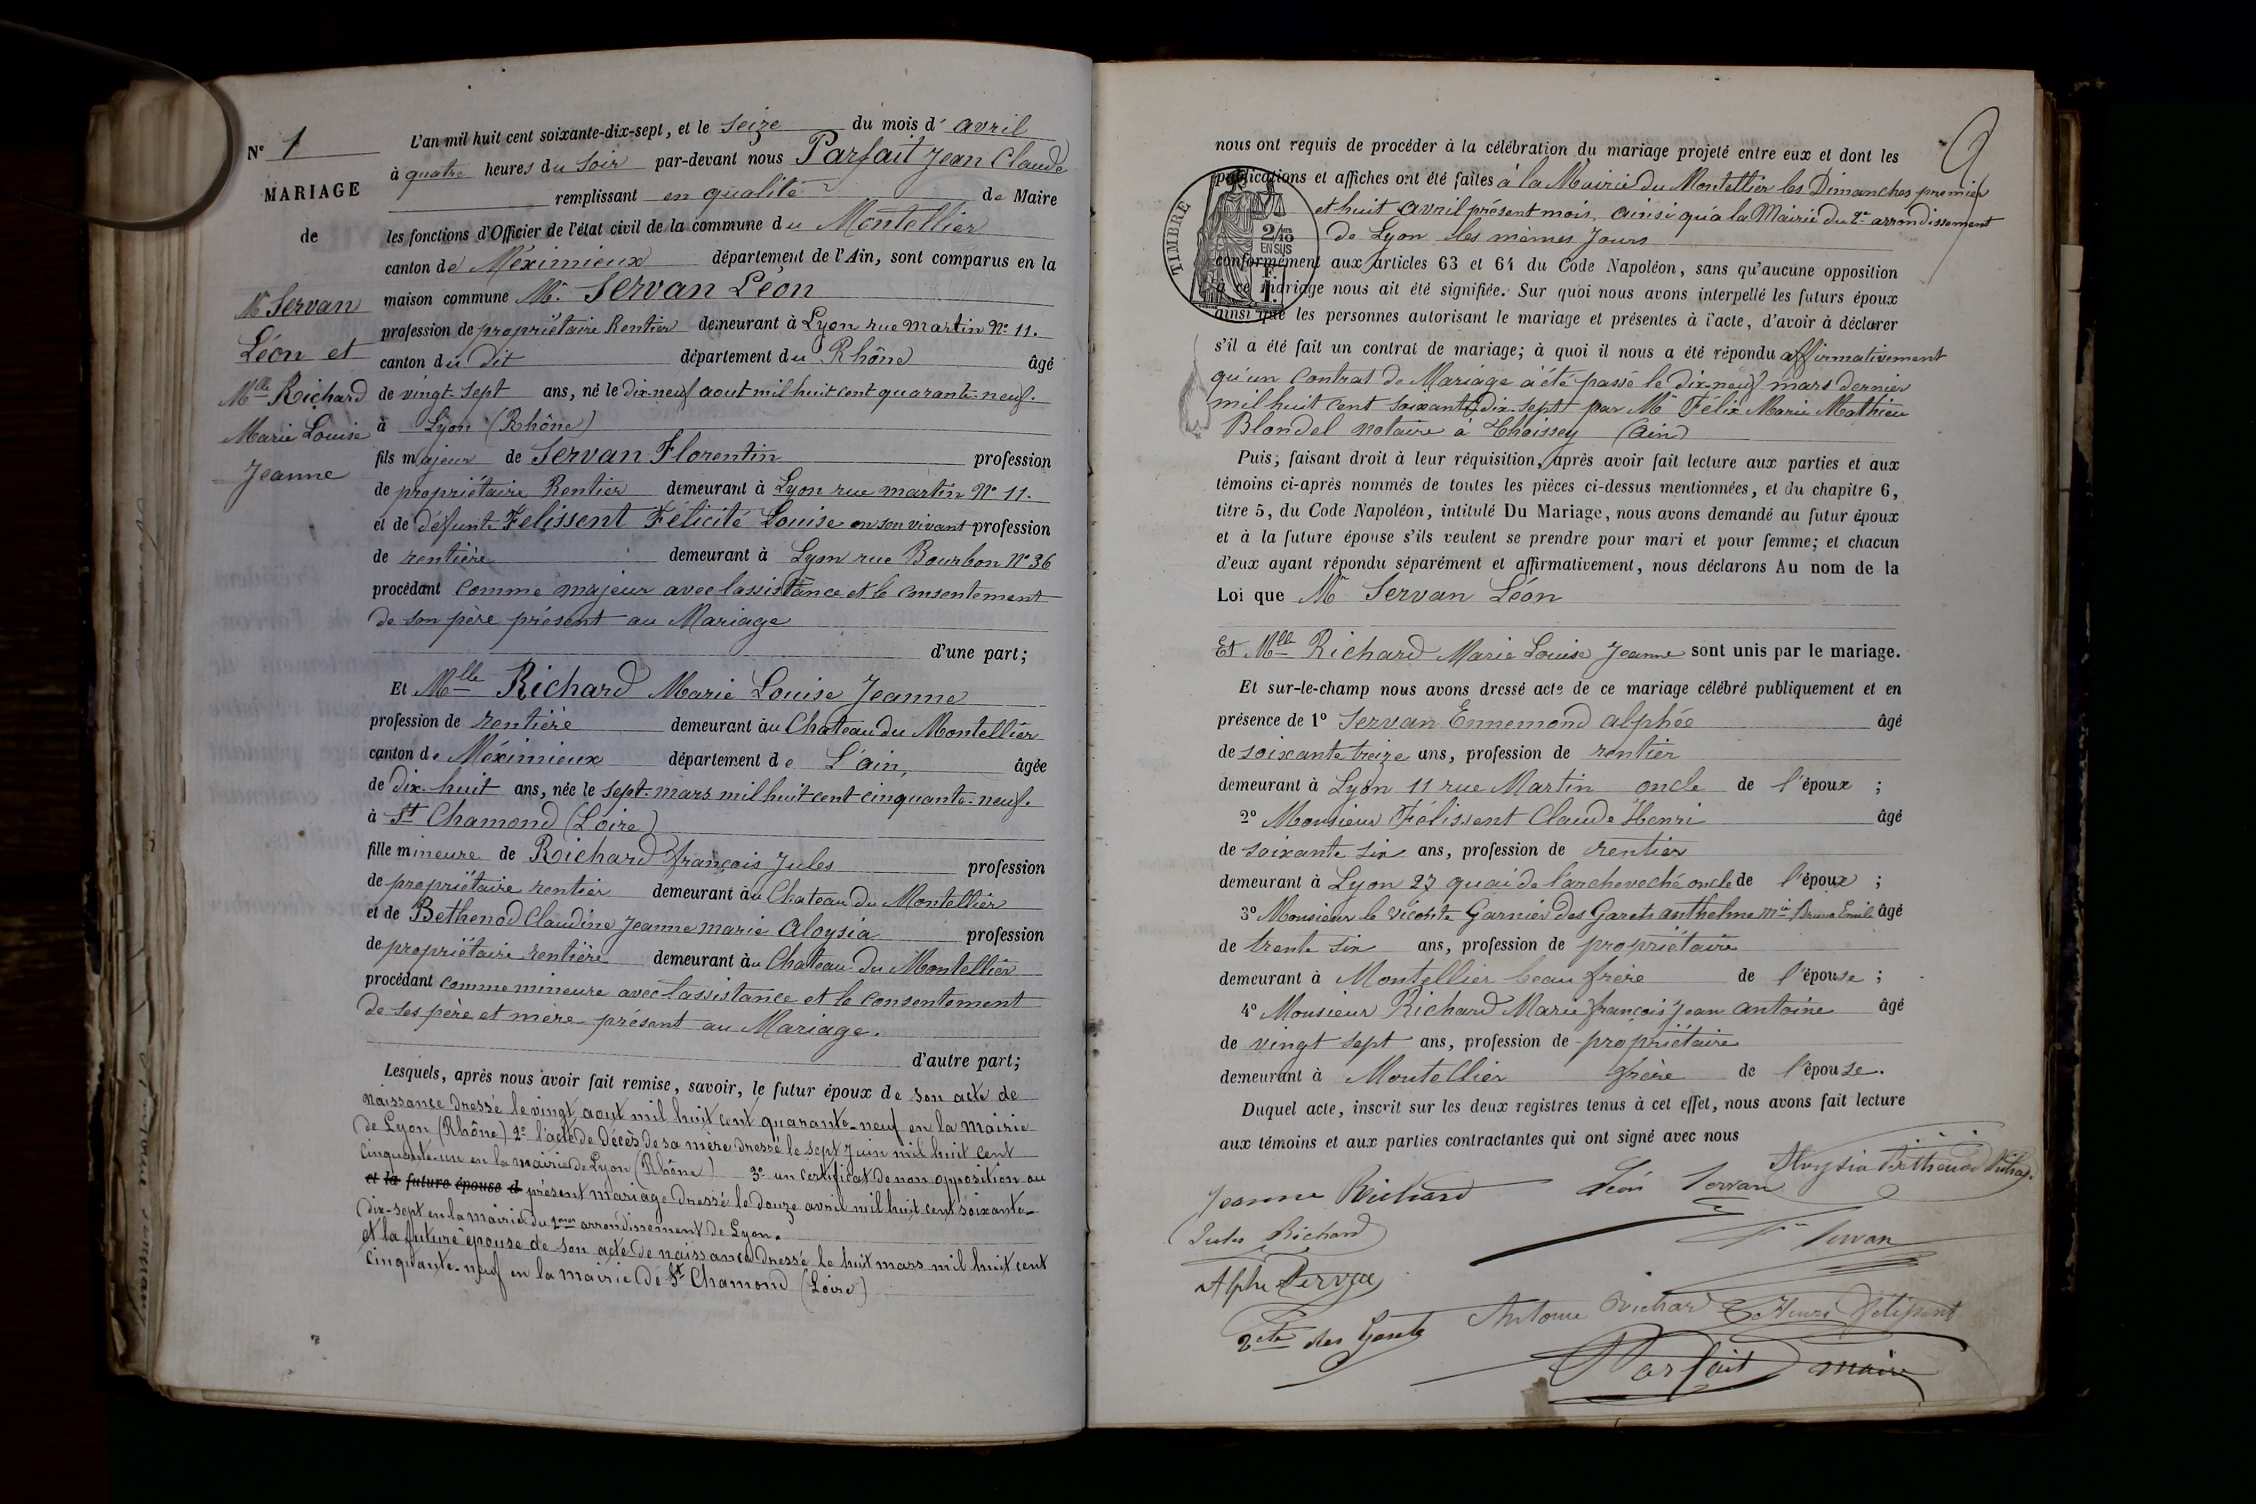 N° 1
MARIAGE
de
Mr Servan
Léon et
Mlle Richard
Marie Louise
Jeanne
L'an mil huit cent soixante-dix-sept, et le seize du mois d' avril
à quatre heures du soir par-devant nous Parfait Jean Claude
remplissant en qualité de Maire
les fonctions d'Officier de l'état civil de la commune du Montellier
canton de Méximieux département de l'Ain, sont comparus en la
maison commune Mr. Servan Léon
profession de propriétaire Rentier demeurant à Lyon rue martin N° 11.
canton du dit département du Rhône âgé
de vingt-sept ans, né le dix-neuf aout mil huit cent quarante-neuf.
à Lyon (Rhône)
fils majeur de Servan Florentin profession
de propriétaire Rentier demeurant à Lyon rue martin N° 11.
et de défunte Felissent Félicité Louise en son vivant profession
de rentière demeurant à Lyon rue Bourbon N° 36
procédant comme majeur avec l'assistance et le consentement
de son père présent au Mariage
d'une part;
Et Mlle Richard Marie Louise Jeanne
profession de rentière demeurant au Chateau du Montellier
canton de Méximieux département de L'ain, âgée
de dix-huit ans, née le sept-mars mil huit cent cinquante-neuf.
à St Chamond (Loire)
fille mineure de Richard françois Jules profession
de propriétaire rentier demeurant au Chateau du Montellier
et de Bethenod Claudine Jeanne marie Aloysia profession
de propriétaire rentière demeurant au Chateau du Montellier
procédant comme mineure avec l'assistance et le consentement
de ses père et mère présent au Mariage.
d'autre part;
Lesquels, après nous avoir fait remise, savoir, le futur époux de son acte de
naissance dressé le vingt aout mil huit cent quarante-neuf en la mairie
de Lyon (Rhône) 2° l'acte de Décès de sa mère dressé le sept Juin mil huit cent
cinquante-un en la mairie de Lyon (Rhône) 3° un certificat de non opposition au
et la future épouse d présent mariage dressé le douze avril mil huit cent soixante-
dix-sept en la mairie du 2me arrondissement de Lyon.
et la future épouse de son acte de naissance dressé le huit mars mil huit cent
cinquante-neuf en la mairie de St Chamond (Loire)
nous ont requis de procéder à la célébration du mariage projeté entre eux et dont les
publications et affiches ont été faites à la Mairie du Montellier les Dimanches premier
et huit avril présent mois, ainsi qu'a la Mairie du 2e arrondissement
de Lyon les mêmes Jours
TIMBRE
2/10es
EN SUS
1 F.
conformément aux articles 63 et 64 du Code Napoléon, sans qu'aucune opposition
à ce mariage nous ait été signifiée. Sur quoi nous avons interpellé les futurs époux
ainsi que les personnes autorisant le mariage et présentes à l'acte, d'avoir à déclarer
s'il a été fait un contrat de mariage; à quoi il nous a été répondu affirmativement
qu'un Contrat de Mariage a été passé le dix-neuf mars dernier
mil huit cent soixante dix-sept par Me Félix Marie Mathieu
Blondel notaire à Thoissey (Ain)
Puis, faisant droit à leur réquisition, après avoir fait lecture aux parties et aux
témoins ci-après nommés de toutes les pièces ci-dessus mentionnées, et du chapitre 6,
titre 5, du Code Napoléon, intitulé Du Mariage, nous avons demandé au futur époux
et à la future épouse s'ils veulent se prendre pour mari et pour femme; et chacun
d'eux ayant répondu séparément et affirmativement, nous déclarons Au nom de la
Loi que Mr Servan Léon
Et Mlle Richard Marie Louise Jeanne sont unis par le mariage.
Et sur-le-champ nous avons dressé acte de ce mariage célébré publiquement et en
présence de 1° Servan Ennemond alphée âgé
de soixante treize ans, profession de rentier
demeurant à Lyon 11 rue Martin oncle de l'époux ;
2° Monsieur Félissent Claude Henri âgé
de soixante six ans, profession de rentier
demeurant à Lyon 27 quai de l'archeveché oncle de l'époux ;
3° Monsieur le vicomte Garnier des Garets anthelme mie Bruno Emile âgé
de trente six ans, profession de propriétaire
demeurant à Montellier beau frère de l'épouse ;
4° Monsieur Richard Marie françois Jean antoine âgé
de vingt sept ans, profession de propriétaire
demeurant à Montellier frère de l'épouse.
Duquel acte, inscrit sur les deux registres tenus à cet effet, nous avons fait lecture
aux témoins et aux parties contractantes qui ont signé avec nous
Jeanne Richard Léon Servan Aloysia Bethenod Richard
Jules Richard Fn Servan
Alphée Servan
Vcte des Garets Antoine Richard Cde Henri Felissent
Parfait maire